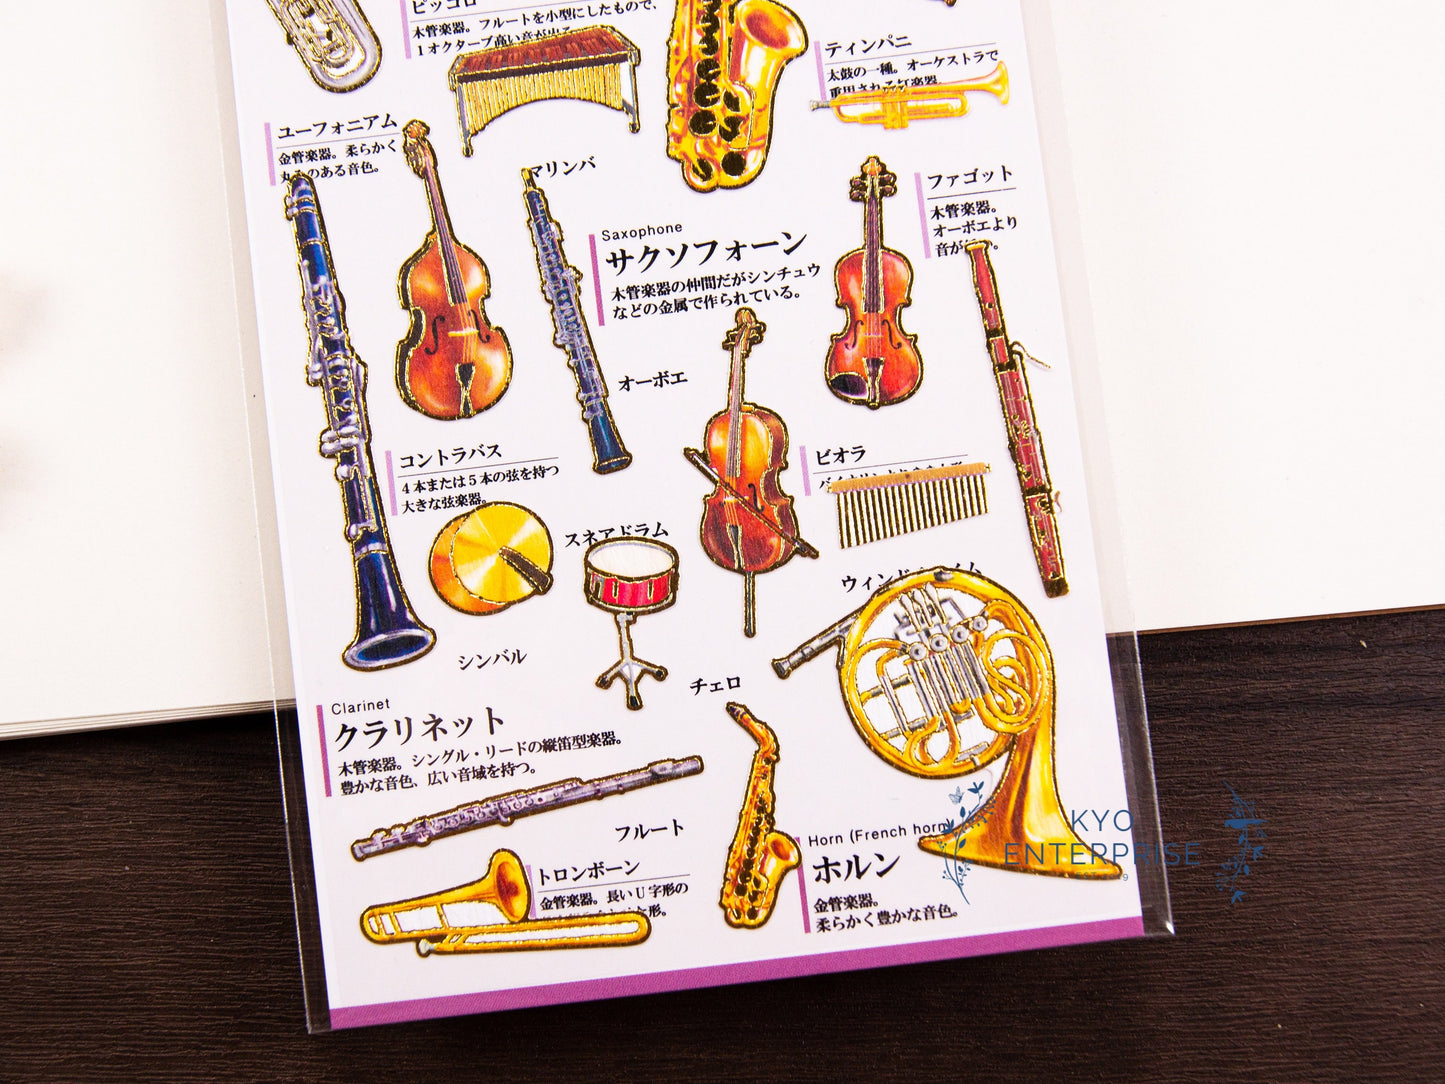 ピッコロ
木管楽器。フルートを小型にしたもので、
1オクターブ高い音が出る
ティンパニ
太鼓の一種。オーケストラで
重用される打楽器。
ユーフォニアム
金管楽器。柔らかく
のある音色。
マリンバ
ファゴット
木管楽器。
オーボエより
音が
Saxophone
サクソフォーン
木管楽器の仲間だがシンチュウ
などの金属で作られている。
オーボエ
コントラバス
4本または5本の弦を持つ
大きな弦楽器。
ビオラ
スネアドラム
ウィンドチャイム
シンバル
チェロ
Clarinet
クラリネット
木管楽器。シングル・リードの縦笛型楽器。
豊かな音色、広い音域を持つ。
フルート
トロンボーン
金管楽器。長いU字形の
形。
Horn (French horn)
ホルン
金管楽器。
柔らかく豊かな音色。
KYO
ENTERPRISE